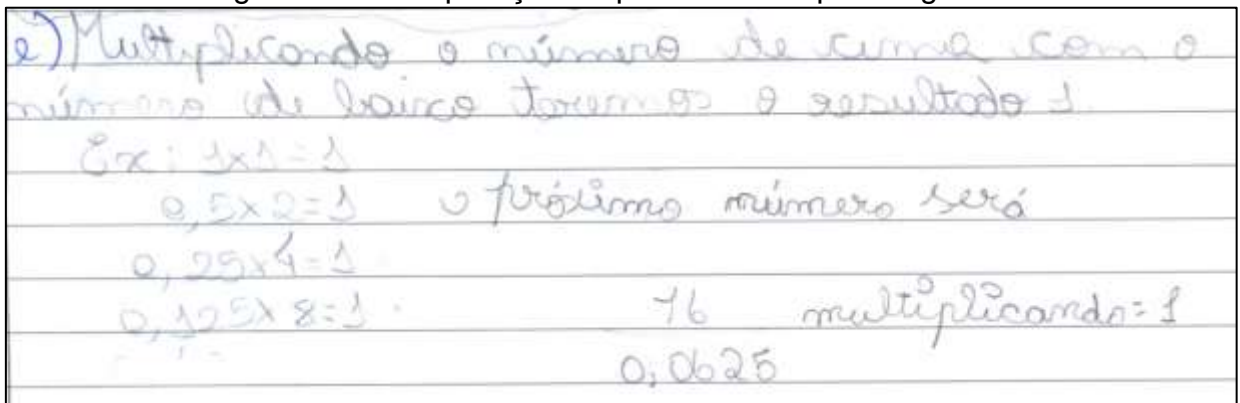 e) Multiplicando o número de cima com o
número de baixo toremos o resultado 1.
Ex: 1x1=1
0,5x2=1 o próximo número será
0,25x4=1
0,125x8=1. 16 multiplicando=1
0,0625